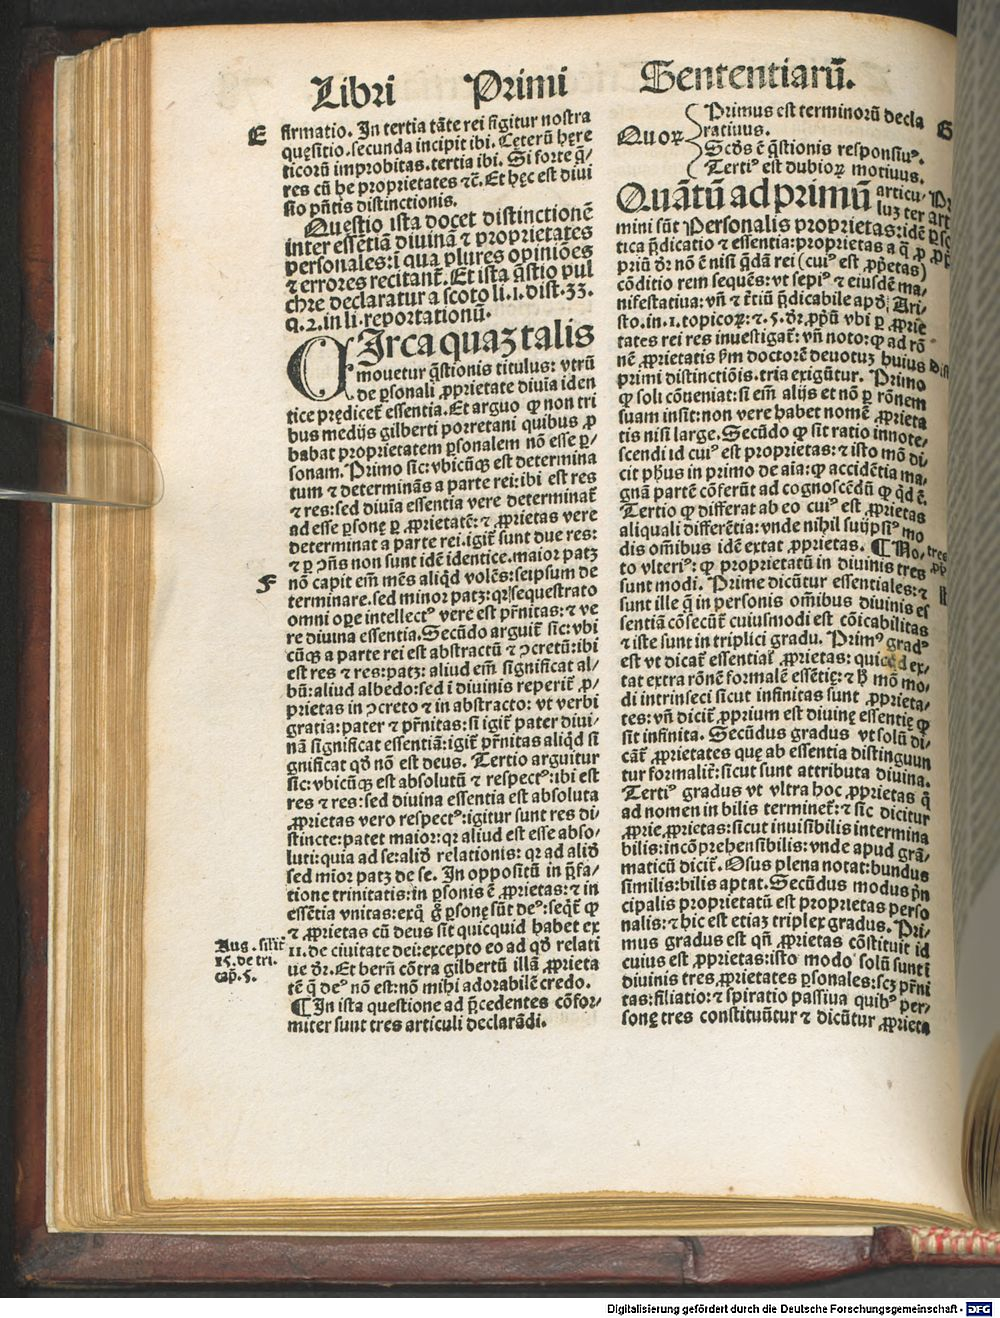 Libri Primi Sententiarū.
E
firmatio. In tertia tāte rei figitur nostra
quęsitio. secunda incipit ibi. Ceterū hęre
ticorū improbitas. tertia ibi. Si forte q̄/
res cū he proprietates ⁊c̄. Et hęc est diui
sio pn̄tis distinctionis.
Questio ista docet distinctionē
inter essētiā diuinā ⁊ proprietates
personales: ī qua plures opiniōes
⁊ errores recitant̄. Et ista q̄stio pul
chre declaratur a scoto li. 1. dist. 33.
q. 2. in li. reportationū.
CIrca quaꝫ talis
mouetur q̄stionis titulus: vtrū
de ꝑsonali ꝓprietate diuīa iden
tice prędicet̄ essentia. Et arguo ꝙ non tri
bus medijs gilberti porretani quibus ꝓ
babat proprietatem ꝑsonalem nō esse ꝑ/
sonam. Primo sic: vbicūqꝫ est determina
tum ⁊ determinās a parte rei: ibi est res
⁊ res: sed diuīa essentia vere determinat̄
ad esse ꝑsonę ꝑ ꝓprietatē: ⁊ ꝓprietas vere
determinat a parte rei. igit̄ sunt due res:
⁊ ꝑ ↄn̄s non sunt idē identice. maior patꝫ
F
nō capit em̄ mēs aliqd̄ volēs: seipsum de
terminare. sed minor patꝫ: qꝛ sequestrato
omni oꝑe intellectꝰ vere est pr̄nitas: ⁊ ve
re diuina essentia. Secūdo arguit̄ sic: vbi
cūqꝫ a parte rei est abstractū ⁊ ↄcretū: ibi
est res ⁊ res: patꝫ: aliud em̄ significat al/
bū: aliud albedo: sed ī diuinis reperit̄ ꝓ/
prietas in ↄcreto ⁊ in abstracto: vt verbi
gratia: pater ⁊ pr̄nitas: si igit̄ pater diui/
nā significat essentiā: igit̄ pr̄nitas aliqd̄ si
gnificat qd̄ nō est deus. Tertio arguitur
sic: vbicūqꝫ est absolutū ⁊ respectꝰ: ibi est
res ⁊ res: sed diuina essentia est absoluta
ꝓprietas vero respectꝰ: igitur sunt res di/
stincte: patet maior: qꝛ aliud est esse abso/
luti: quia ad se: aliđ relationis: qꝛ ad aliđ
sed mior patꝫ de se. In oppositū in p̄fa/
tione trinitatis: in ꝑsonis ē ꝓprietas: ⁊ in
essētia vnitas: exq̄ g̊ ꝑsonę sūt deꝰ: seqt̄ ꝙ
⁊ ꝓprietas cū deus sit quicquid habet ex
Aug. silit̄
15. de tri.
cap̄. 5.
11. de ciuitate dei: excepto eo ad qđ relati
ue dr̄. Et bern̄ cōtra gilbertū illā ꝓprieta
tē q̄ deꝰ nō est: nō mihi adorabilē credo.
¶ In ista questione ad p̄cedentes cōfor/
miter sunt tres articuli declarādi.
Quoꝝ
Primus est terminorū decla
ratiuus.
Scd̄s ē q̄stionis responsiuꝰ.
Tertiꝰ est dubioꝝ motiuus.
G
Quātū ad primū articu/
luꝫ ter
mini sūt Personalis proprietas: idē
tica p̄dicatio ⁊ essentia: proprietas a q̄ ꝓ
priū dr̄ nō ē nisi q̄dā rei (cuiꝰ est ꝓp̄etas)
cōditio rem sequēs: vt sepiꝰ ⁊ eiusdē ma/
nifestatiua: vn̄ ⁊ t̄tiū p̄dicabile apđ Ari/
sto. in. 1. topicoꝝ: ⁊. 5. dr̄ ꝓpū vbi ꝑ ꝓprie
tates rei res inuestigat̄: vn̄ noto: ꝙ ad rō
nē ꝓprietatis ſm doctorē deuotuꝫ huius
primi distinctiōis. tria exigūtur. Primo
ꝙ soli cōueniat: si em̄ alijs et nō ꝑ rōnem
suam insit: non vere habet nomē ꝓprieta
tis nisi large. Secūdo ꝙ sit ratio innote/
scendi id cuiꝰ est proprietas: ⁊ isto mō di/
cit ph̄us in primo de aīa: ꝙ accidētia ma/
gnā partē cōferūt ad cognoscēdū ꝙ qd̄ ē.
Tertio ꝙ differat ab eo cuiꝰ est ꝓprietas
aliquali differētia: vnde nihil suijpsiꝰ mo
dis om̄ibus idē extat ꝓprietas. ¶ No/
to vlteriꝰ: ꝙ proprietatū in diuinis tres
sunt modi. Prime dicūtur essentiales: ⁊
sunt ille q̄ in personis om̄ibus diuinis es
sentiā cōsecūt̄ cuiusmodi est cōicabilitas
⁊ iste sunt in triplici gradu. Primꝰ gradꝰ
est vt dicat̄ essentiat̄ ꝓprietas: quicqd ex/
tat extra rōnē formalē essētię: ⁊ h̄ mō mo/
di intrinseci sicut infinitas sunt ꝓprieta/
tes: vn̄ dicit̄ ꝓprium est diuinę essentię ꝙ
sit infinita. Secūdus gradus vt solū di/
cāt̄ ꝓprietates quę ab essentia distinguun
tur formalit̄: sicut sunt attributa diuina.
Tertiꝰ gradus vt vltra hoc ꝓprietas q̄
ad nomen in bilis terminet̄: ⁊ sic dicitur
ꝓprie ꝓprietas: sicut inuisibilis intermina
bilis: incōprehensibilis: vnde apud grā/
maticū dicit̄. Osus plena notat: bundus
similis: bilis aptat. Secūdus modus pn̄
cipalis proprietatū est proprietas perso
nalis: ⁊ hic est etiaꝫ triplex gradus. Pri/
mus gradus est qn̄ ꝓprietas cōstituit id
cuius est ꝓprietas: isto modo solū sunt ī
diuinis tres ꝓprietates ꝑsonales: scꝫ pr̄ni
tas: filiatio: ⁊ spiratio passiua quibꝰ per/
sonę tres constituūtur ⁊ dicūtur ꝓprieta
Digitalisierung gefördert durch die Deutsche Forschungsgemeinschaft - DFG